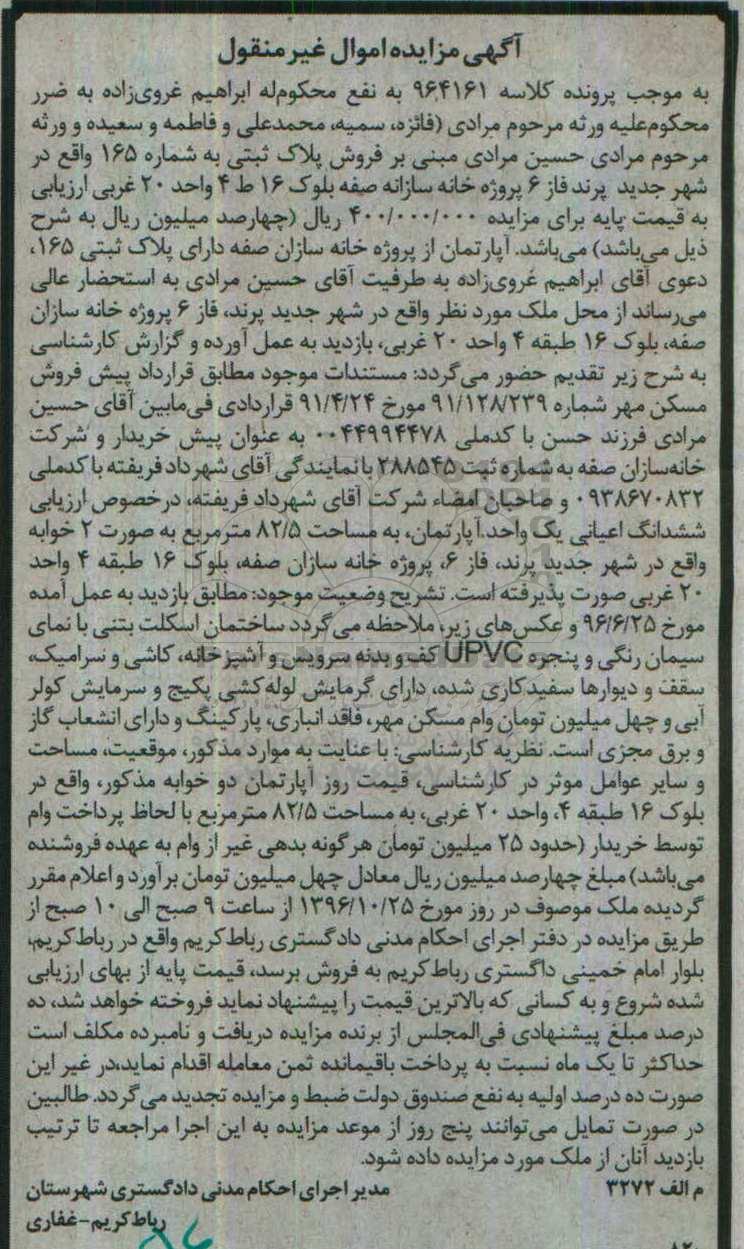 آگهی مزایده اموال غیر منقول
به موجب پرونده کلاسه ۹۶۴۱۶۱ به نفع محکوم‌له ابراهیم غروی‌زاده به ضرر
محکوم‌علیه ورثه مرحوم مرادی (فائزه، سمیه، محمدعلی و فاطمه و سعیده و ورثه
مرحوم مرادی حسین مرادی مبنی بر فروش پلاک ثبتی به شماره ۱۶۵ واقع در
شهر جدید پرند فاز ۶ پروژه خانه سازانه صفه بلوک ۱۶ ط ۴ واحد ۲۰ غربی ارزیابی
به قیمت پایه برای مزایده ۴۰۰/۰۰۰/۰۰۰ ریال (چهارصد میلیون ریال به شرح
ذیل می‌باشد) می‌باشد. آپارتمان از پروژه خانه سازان صفه دارای پلاک ثبتی ۱۶۵،
دعوی آقای ابراهیم غروی‌زاده به طرفیت آقای حسین مرادی به استحضار عالی
می‌رساند از محل ملک مورد نظر واقع در شهر جدید پرند، فاز ۶ پروژه خانه سازان
صفه، بلوک ۱۶ طبقه ۴ واحد ۲۰ غربی، بازدید به عمل آورده و گزارش کارشناسی
به شرح زیر تقدیم حضور می‌گردد: مستندات موجود مطابق قرارداد پیش فروش
مسکن مهر شماره ۹۱/۱۲۸/۲۳۹ مورخ ۹۱/۴/۲۴ قراردادی فی‌مابین آقای حسین
مرادی فرزند حسن با کدملی ۰۰۴۴۹۹۴۴۷۸ به عنوان پیش خریدار و شرکت
خانه‌سازان صفه به شماره ثبت ۲۸۸۵۴۵ با نمایندگی آقای شهرداد فریفته با کدملی
۰۹۳۸۶۷۰۸۳۲ و صاحبان امضاء شرکت آقای شهرداد فریفته، درخصوص ارزیابی
ششدانگ اعیانی یک واحد آپارتمان، به مساحت ۸۲/۵ مترمربع به صورت ۲ خوابه
واقع در شهر جدید پرند، فاز ۶، پروژه خانه سازان صفه، بلوک ۱۶ طبقه ۴ واحد
۲۰ غربی صورت پذیرفته است. تشریح وضعیت موجود: مطابق بازدید به عمل آمده
مورخ ۹۶/۶/۲۵ و عکس‌های زیر، ملاحظه می‌گردد ساختمان اسکلت بتنی با نمای
سیمان رنگی و پنجره UPVC کف و بدنه سرویس و آشپزخانه، کاشی و سرامیک،
سقف و دیوارها سفیدکاری شده، دارای گرمایش لوله‌کشی پکیج و سرمایش کولر
آبی و چهل میلیون تومان وام مسکن مهر، فاقد انباری، پارکینگ و دارای انشعاب گاز
و برق مجزی است. نظریه کارشناسی: با عنایت به موارد مذکور، موقعیت، مساحت
و سایر عوامل موثر در کارشناسی، قیمت روز آپارتمان دو خوابه مذکور، واقع در
بلوک ۱۶ طبقه ۴، واحد ۲۰ غربی، به مساحت ۸۲/۵ مترمربع با لحاظ پرداخت وام
توسط خریدار (حدود ۲۵ میلیون تومان هرگونه بدهی غیر از وام به عهده فروشنده
می‌باشد) مبلغ چهارصد میلیون ریال معادل چهل میلیون تومان برآورد و اعلام مقرر
گردیده ملک موصوف در روز مورخ ۱۳۹۶/۱۰/۲۵ از ساعت ۹ صبح الی ۱۰ صبح از
طریق مزایده در دفتر اجرای احکام مدنی دادگستری رباط‌کریم واقع در رباط‌کریم،
بلوار امام خمینی داگستری رباط‌کریم به فروش برسد، قیمت پایه از بهای ارزیابی
شده شروع و به کسانی که بالاترین قیمت را پیشنهاد نماید فروخته خواهد شد، ده
درصد مبلغ پیشنهادی فی‌المجلس از برنده مزایده دریافت و نامبرده مکلف است
حداکثر تا یک ماه نسبت به پرداخت باقیمانده ثمن معامله اقدام نماید،در غیر این
صورت ده درصد اولیه به نفع صندوق دولت ضبط و مزایده تجدید می‌گردد. طالبین
در صورت تمایل می‌توانند پنج روز از موعد مزایده به این اجرا مراجعه تا ترتیب
بازدید آنان از ملک مورد مزایده داده شود.
م الف ۳۲۷۲ مدیر اجرای احکام مدنی دادگستری شهرستان
رباط‌کریم-غفاری